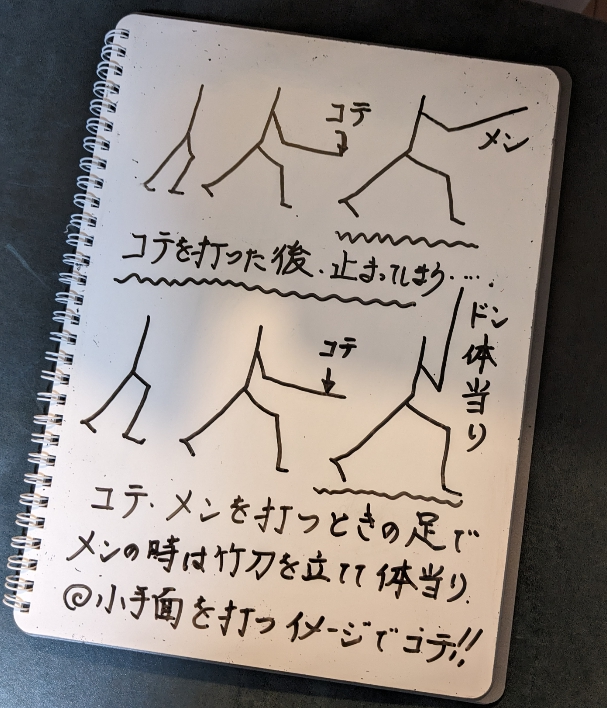 コテ
メン
コテを打った後、止まってしまう・・・・
コテ
ドン
体当り
コテ・メンを打つときの足で
メンの時は竹刀を立てて体当り.
◎小手面を打つイメージでコテ!!